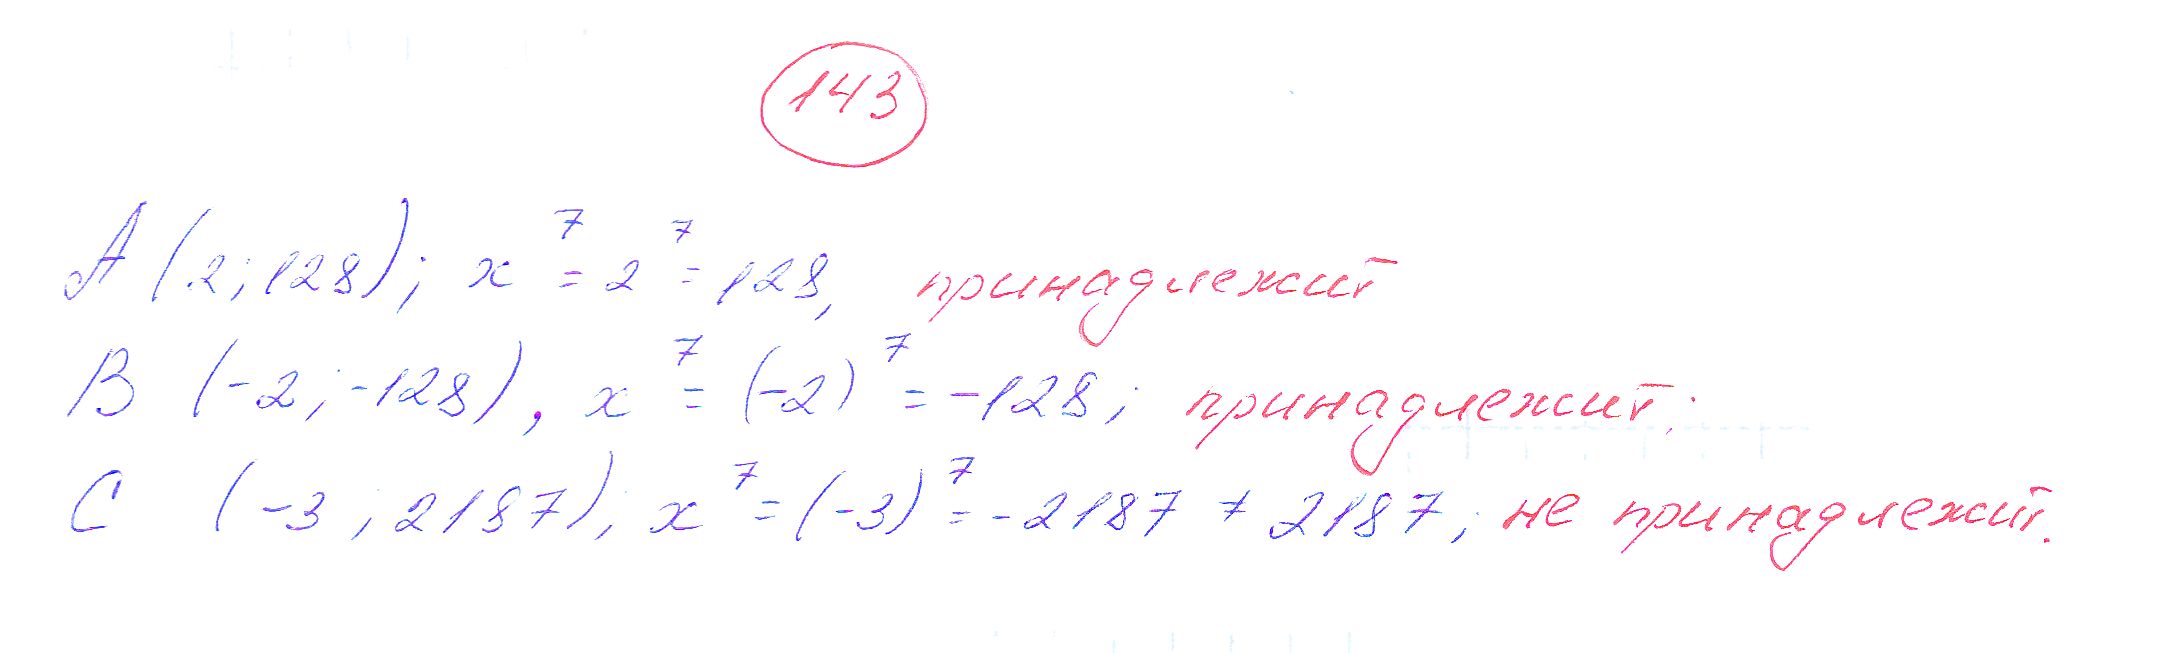 143
A (2; 128); x⁷ = 2⁷ = 128, принадлежит
B (-2; -128), x⁷ = (-2)⁷ = -128; принадлежит;
C (-3; 2187); x⁷ = (-3)⁷ = -2187 ≠ 2187; не принадлежит.